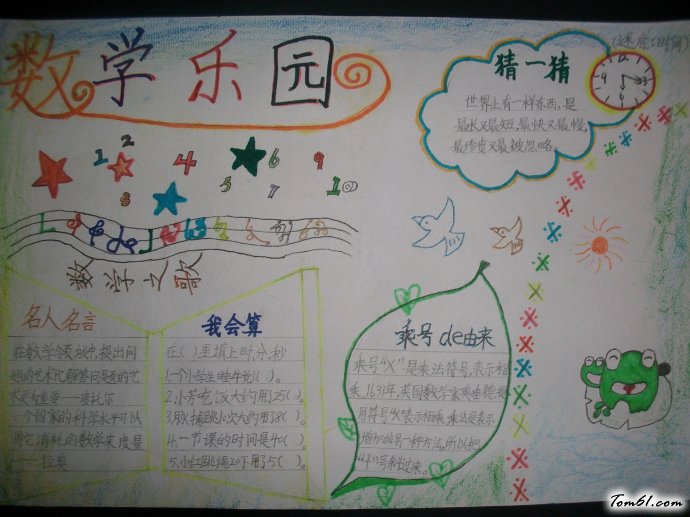 数学乐园
猜一猜
世界上有一样东西,是
最长又最短,最快又最慢,
最珍贵又最被忽略。
1 2 3 4 5 6 7 8 9 10
数学之歌
名人名言
在数学领域中,提出问
题的艺术比解答问题的艺
术更为重要——康托尔
一个国家的科学水平可以
用它消耗的数学来度量
——拉奥
我会算
在( )里填上时、分、秒
1.一个小学生睡午觉1( )。
2.小芳吃饭大约用25( )。
4.一节课的时间是40( )。
5.小红跳绳20下用了5( )。
乘号de由来
乘号“×”是乘法符号,表示相
乘,1631年,英国数学家奥
用符号“×”表示相乘。乘法是表示
增加的另一种方法,所以把
“+”号斜过来。
Tom61.com